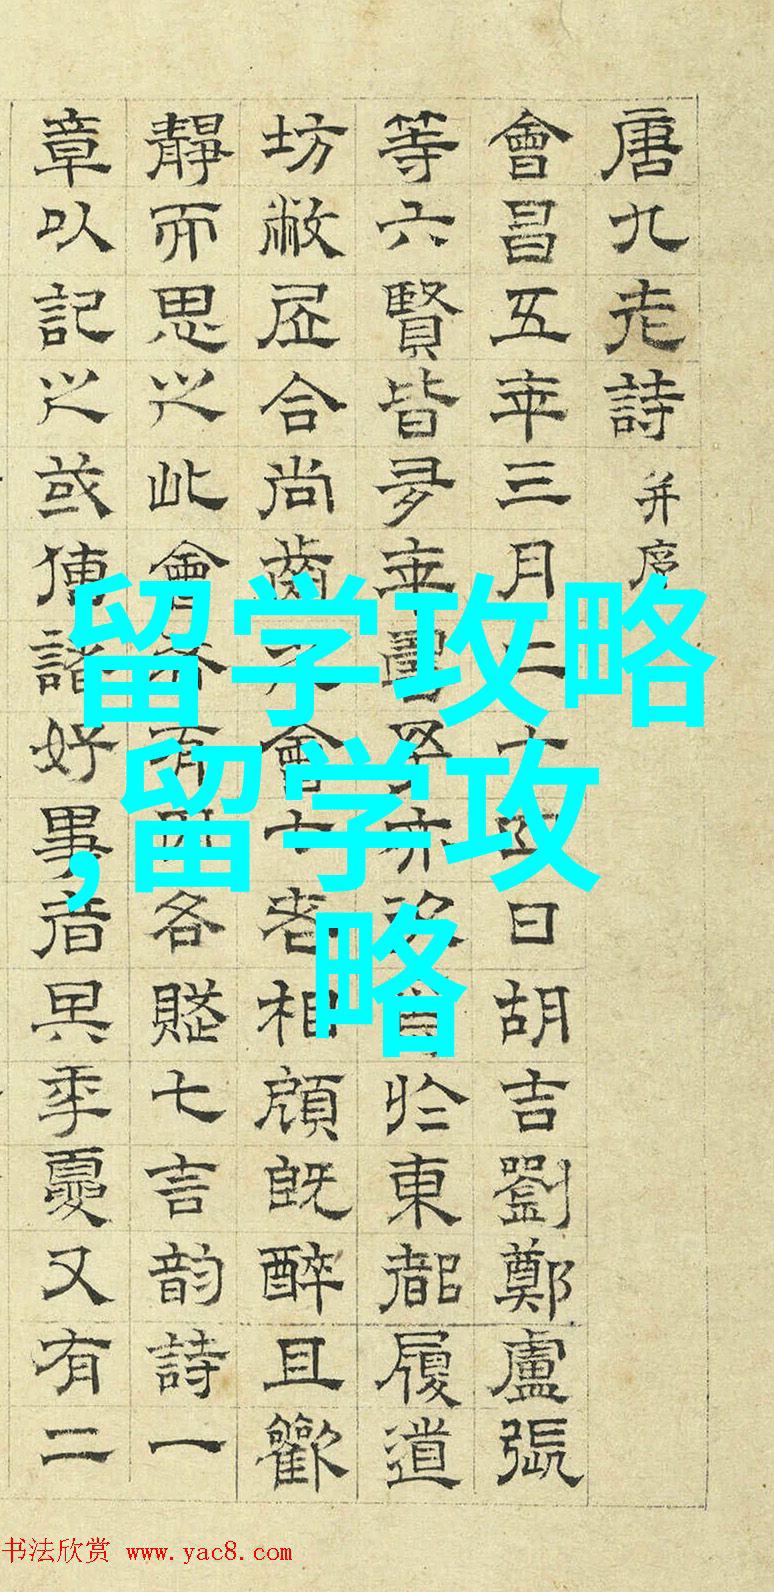 唐九老詩并序
會昌五年三月二十四日胡吉劉鄭盧張
等六賢皆多年壽予亦次焉於東都履道
坊敝居合尚齒之會七老相顧既醉且歡
靜而思之此會希有因各賦七言韵詩一
章以記之或傳諸好事者其年夏又有二
留学攻略
,留学攻
略
书法欣赏 www.yac8.com